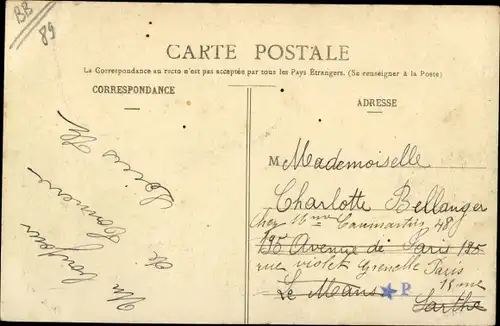 BB
89
CARTE POSTALE
La Correspondance au recto n'est pas acceptée par tous les Pays Étrangers. (Se renseigner à la Poste)
CORRESPONDANCE
ADRESSE
Un bonjour
de
M Mademoiselle
Charlotte Bellanger
Chez Mme Caumartin 48
195 Avenue de Paris 195
rue violet Grenelle Paris
15 me
Le Mans P
Sarthe